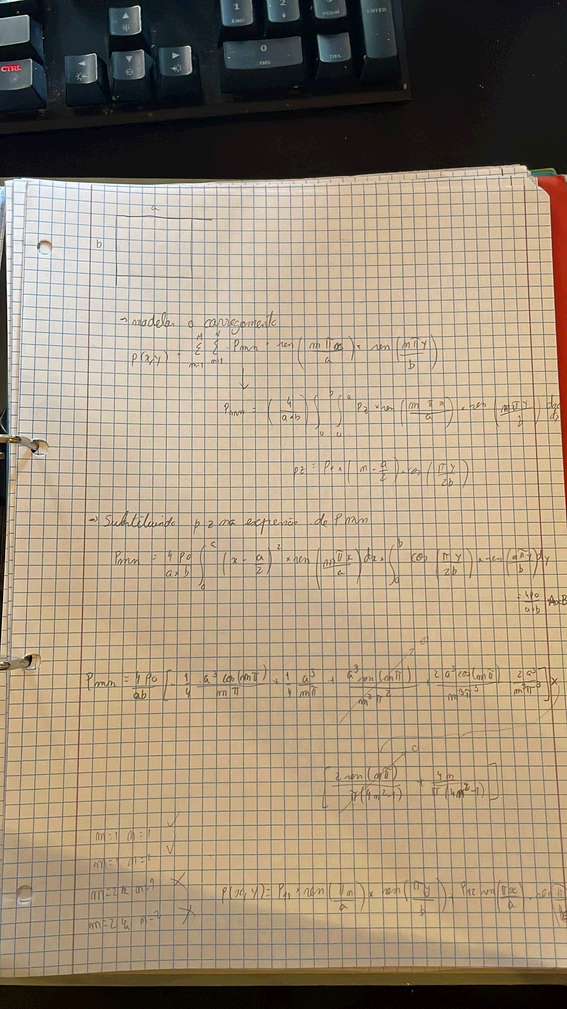 CTRL
1
END
2
0
INS
DEL
ENTER
a
b
→ modelar o carregamento
p(x,y) = Σ Σ Pmn · sen(mπx/a) · sen(nπy/b)
m=1
↓
Pmn = (4/a×b) ∫₀ᵇ ∫₀ᵃ Pz × sen(mπx/a) × sen(nπy/b) dx
pz = (x - a/2)² · cos(πy/2b)
→ Substituindo pz na expressão de Pmn
Pmn = 4P0/a×b ∫₀ᵃ (x - a/2)² × sen(mπx/a) dx × ∫₀ᵇ cos(πy/2b) × sen(nπy/b) dy
= 4P0/ab A×B
Pmn = 4P0/ab [- 1/4 a³cos(mπ)/mπ + 1/4 a³/mπ + a³sen(mπ)/m²π² + 2a³cos(mπ)/m³π³ - 2a³/m³π³] ×
0
[2sen(nπ)/π(4n²-1) + 4n/π(4n²-1)]
m=1 n=1 ✓
m=1 n=2 ✓
m=2 n=1 ×
m=2 n=2 ×
P(x,y) = P11 × sen(πx/a) × sen(πy/b) + P12 sen(πx/a)